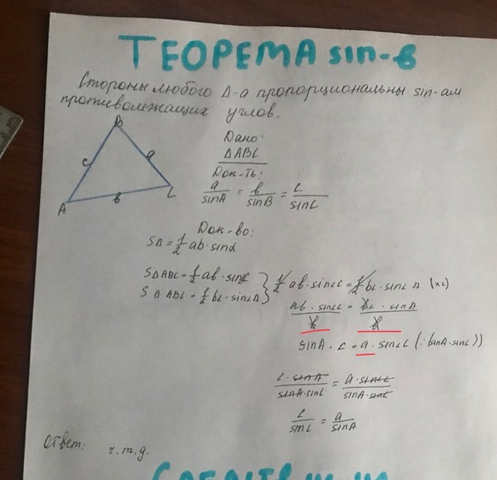 ТЕОРЕМА sin-в
Стороны любого Δ-а пропорциональны sin-ам
противолежащих углов.
B
c
a
A
в
C
Дано:
ΔABC
Док-ть:
a/sinA = b/sinB = c/sinC
Док-во:
SΔ = 1/2 ab·sinα
SΔABC = 1/2 ab·sin∠C } 1/2 ab·sin∠C = 1/2 bc·sin∠A (×2)
SΔABC = 1/2 bc·sin∠A
ab·sin∠C/b = bc·sinA/b
sinA·c = a·sin∠C (:(sinA·sinC)
c·sinA/sinA·sinC = a·sinC/sinA·sinC
c/sinC = a/sinA
Ответ: ч.т.д.